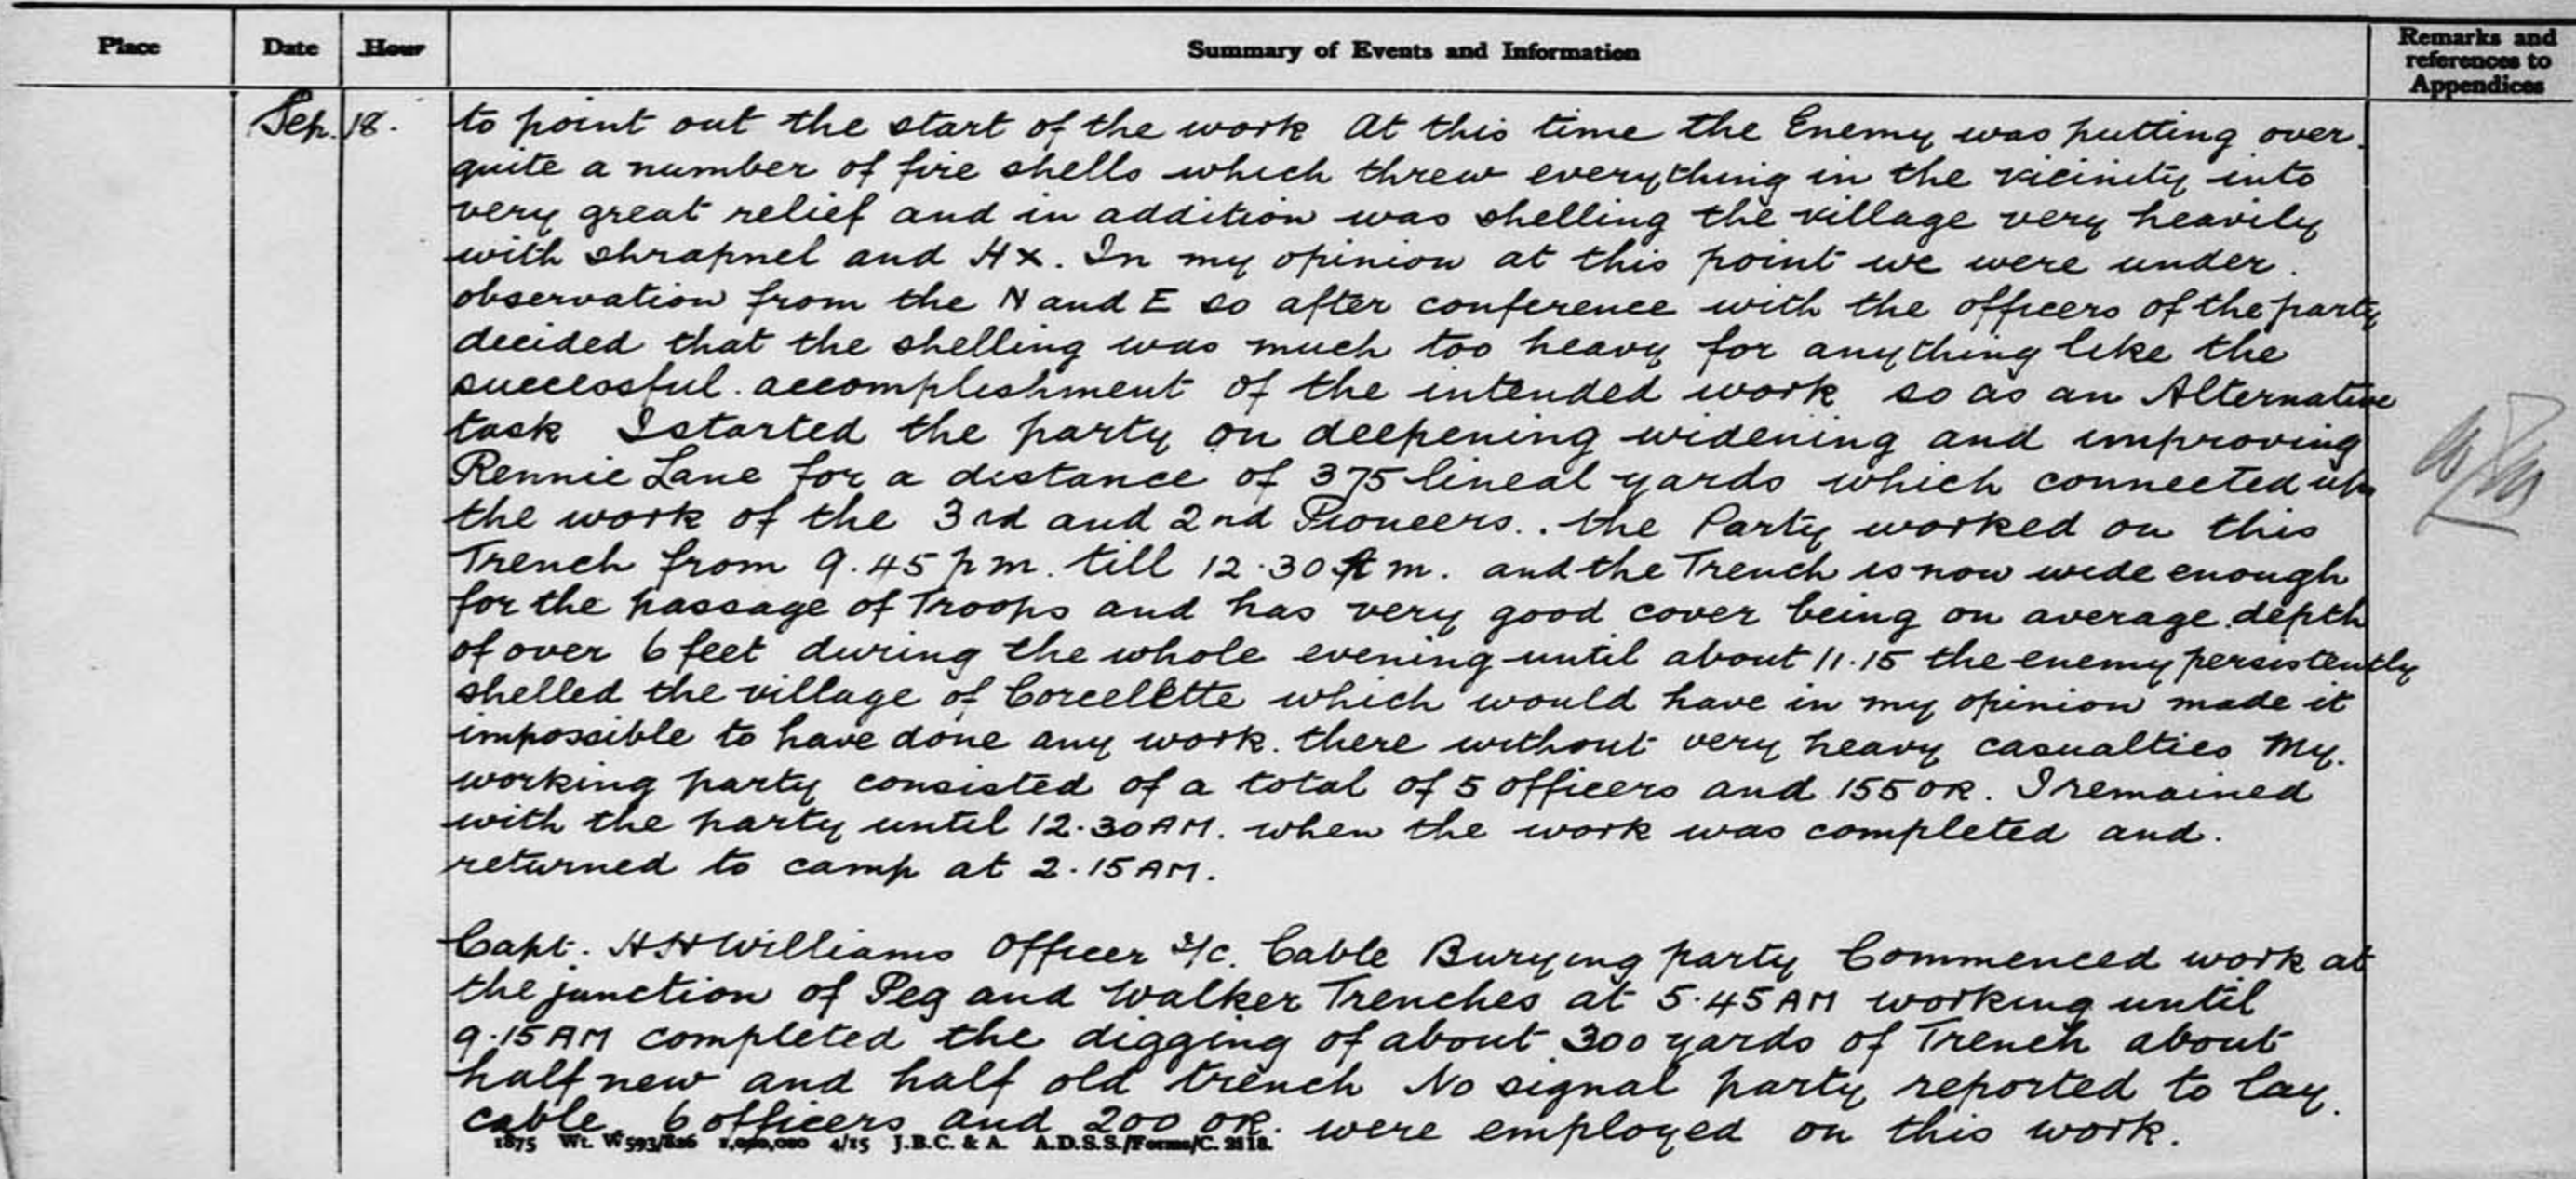 Place Date Hour Summary of Events and Information Remarks and references to Appendices
Sep. 18. to point out the start of the work At this time the Enemy was putting over.
quite a number of fire shells which threw everything in the vicinity into
very great relief and in addition was shelling the village very heavily
with shrapnel and Hx. In my opinion at this point we were under.
observation from the N and E so after conference with the officers of the party
decided that the shelling was much too heavy for anything like the
successful. accomplishment of the intended work so as an Alternative
task I started the party on deepening widening and improving
Rennie Lane for a distance of 375 lineal yards which connected up
the work of the 3rd and 2nd Pioneers.. the Party worked on this
Trench from 9.45 pm. till 12.30 Am. and the Trench is now wide enough
for the passage of Troops and has very good cover being on average depth
of over 6 feet during the whole evening until about 11.15 the enemy persistently
shelled the village of Corcellette which would have in my opinion made it
impossible to have done any work. there without very heavy casualties My.
working party consisted of a total of 5 officers and 155 OR. I remained
with the party until 12.30 AM. when the work was completed and.
returned to camp at 2.15 AM.
Capt. HH Williams Officer I/C. Cable Burying party Commenced work at
the junction of Peg and Walker Trenches at 5.45 AM working until
9.15 AM completed the digging of about 300 yards of Trench about
half new and half old trench No signal party reported to lay.
cable. 6 officers and 200 OR. were employed on this work.
1875 Wt. W593/826 1,000,000 4/15 J.B.C. & A. A.D.S.S./Forms/C. 2118.